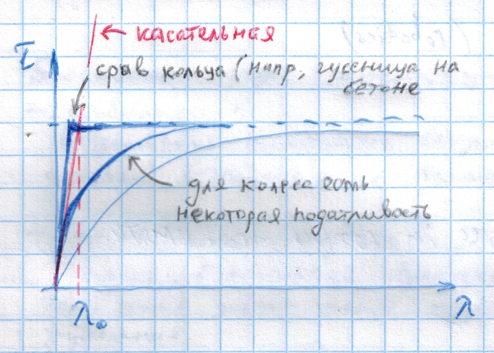 касательная
τ
срыв кольца (напр, гусеница на
бетоне
для колеса есть
некоторая податливость
λ₀
λ